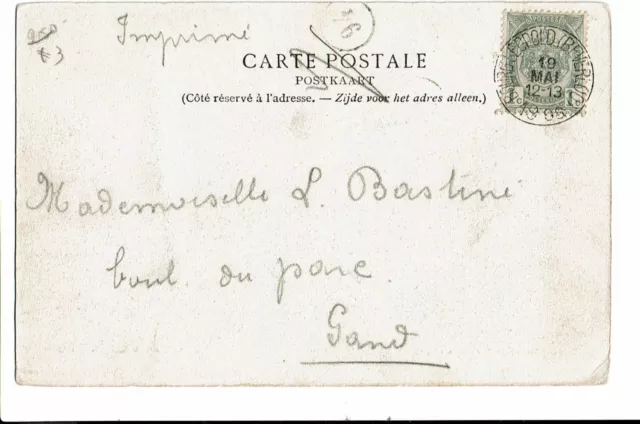 Imprimé
CARTE POSTALE
POSTKAART
(Côté réservé à l'adresse. — Zijde voor het adres alleen.)
19
MAI
12-13
Mademoiselle L. Bastiné
boul. du parc
Gand